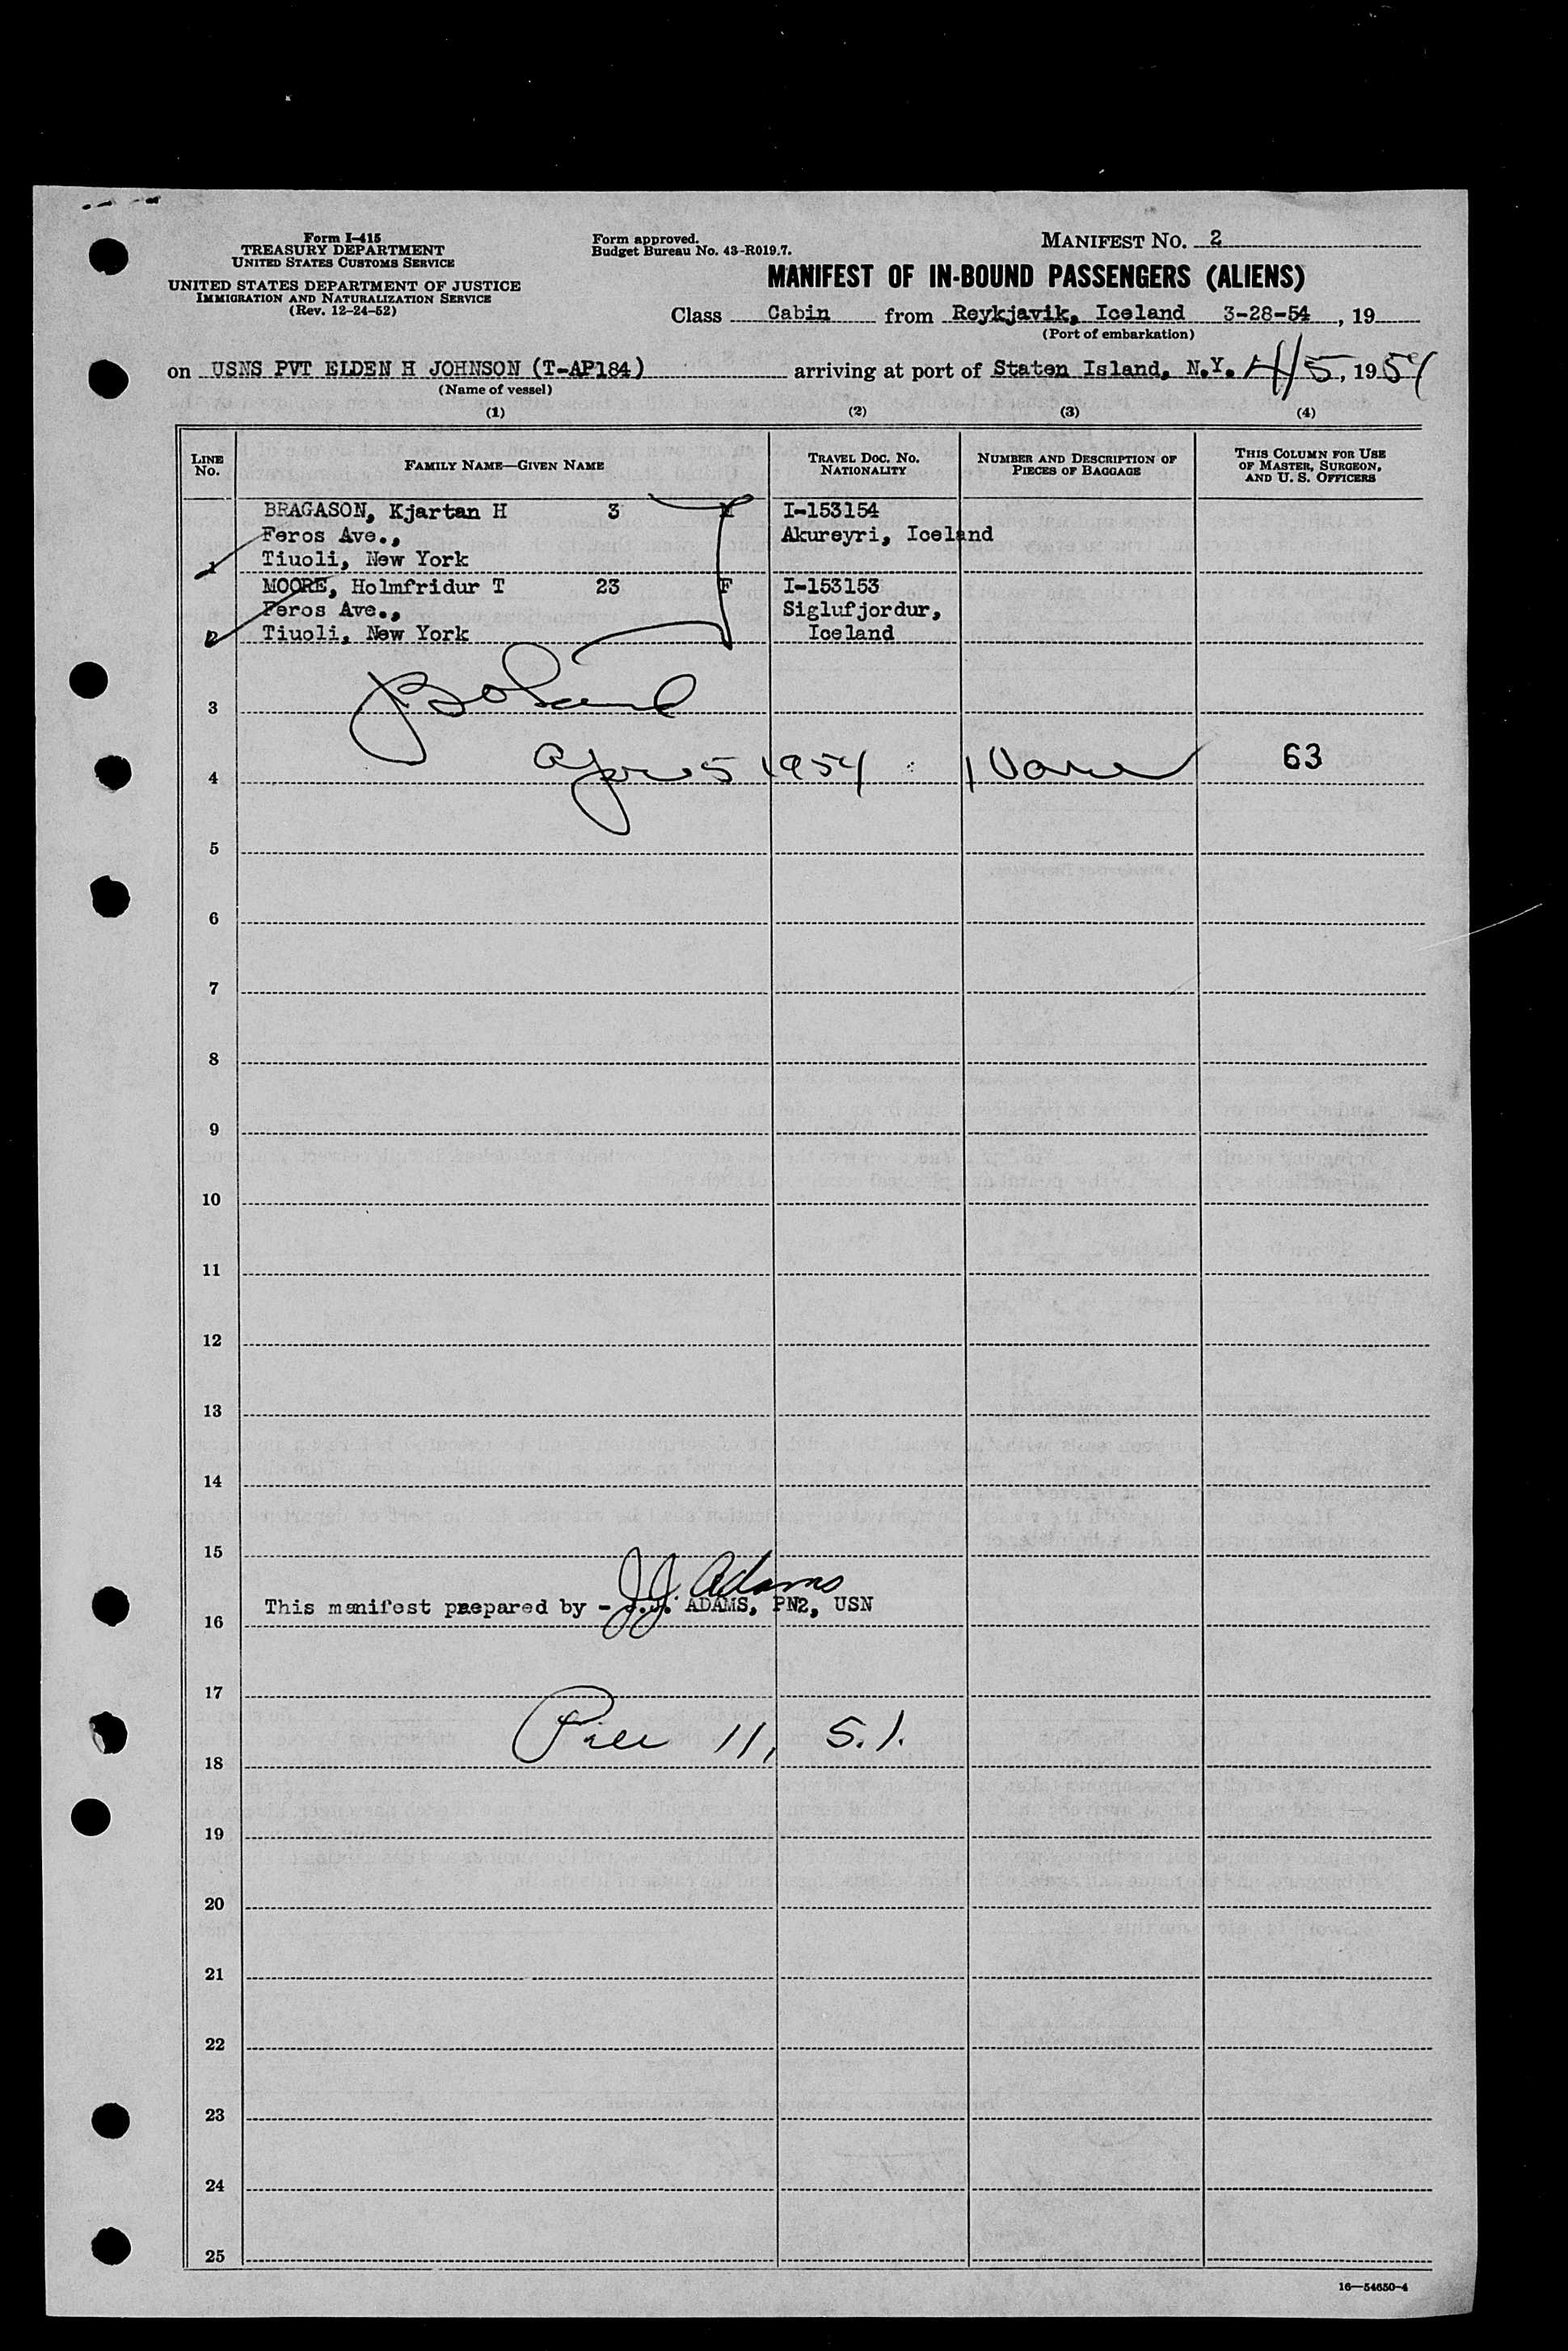 Form I-415
TREASURY DEPARTMENT
UNITED STATES CUSTOMS SERVICE
UNITED STATES DEPARTMENT OF JUSTICE
IMMIGRATION AND NATURALIZATION SERVICE
(Rev. 12-24-52)
Form approved.
Budget Bureau No. 43-R019.7.
MANIFEST NO. 2
MANIFEST OF IN-BOUND PASSENGERS (ALIENS)
Class Cabin from Reykjavik, Iceland 3-28-54, 19
(Port of embarkation)
on USNS PVT ELDEN H JOHNSON (T-AP184) arriving at port of Staten Island, N.Y. 4/5, 1954
(Name of vessel)
(1) (2) (3) (4)
LINE No. FAMILY NAME—GIVEN NAME TRAVEL DOC. NO. NATIONALITY NUMBER AND DESCRIPTION OF PIECES OF BAGGAGE THIS COLUMN FOR USE OF MASTER, SURGEON, AND U. S. OFFICERS
BRAGASON, Kjartan H 3 I-153154
Feros Ave., Akureyri, Iceland
1 Tiuoli, New York
MOORE, Holmfridur T 23 F I-153153
Feros Ave., Siglufjordur,
2 Tiuoli, New York Iceland
3
4 5 1954 63
5
6
7
8
9
10
11
12
13
14
15
J.J. Adams
This manifest prepared by - J.J. ADAMS, PN2, USN
16
17
Pier 11, S.I.
18
19
20
21
22
23
24
25
16—54650-4